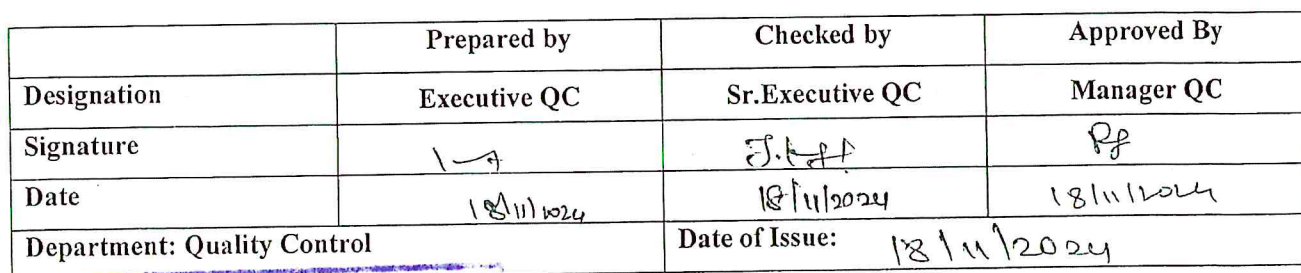 Prepared by Checked by Approved By
Designation Executive QC Sr.Executive QC Manager QC
Signature
Date 18/11/2024 18/11/2024 18/11/2024
Department: Quality Control Date of Issue: 18/11/2024